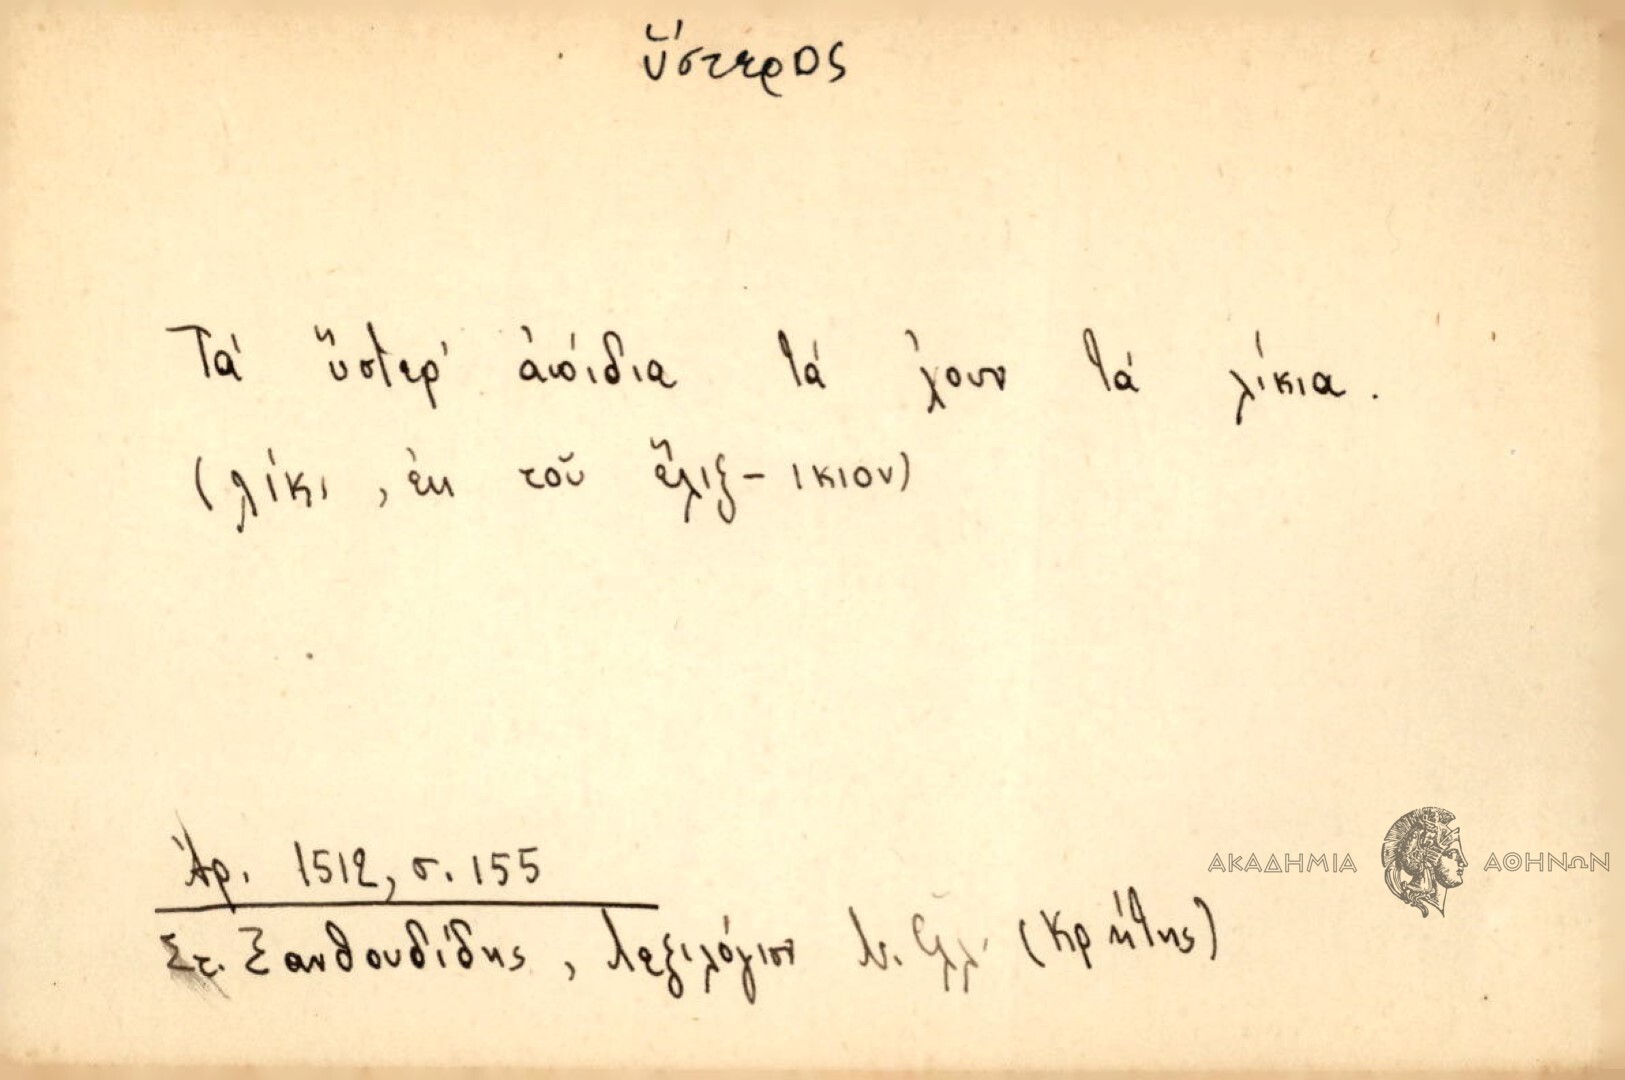 ὕστερος
Τά ὕστερ' ἀπίδια τά 'χουν τά λίκια.
(λίκι, ἐκ τοῦ ἕλιξ-ικιον)
Ἀρ. 1512, σ. 155
Στ. Ξανθουδίδης, Λεξιλόγιον Ν. Ἑλλ. (Κρήτης)
ΑΚΑΔΗΜΙΑ ΑΘΗΝΩΝ